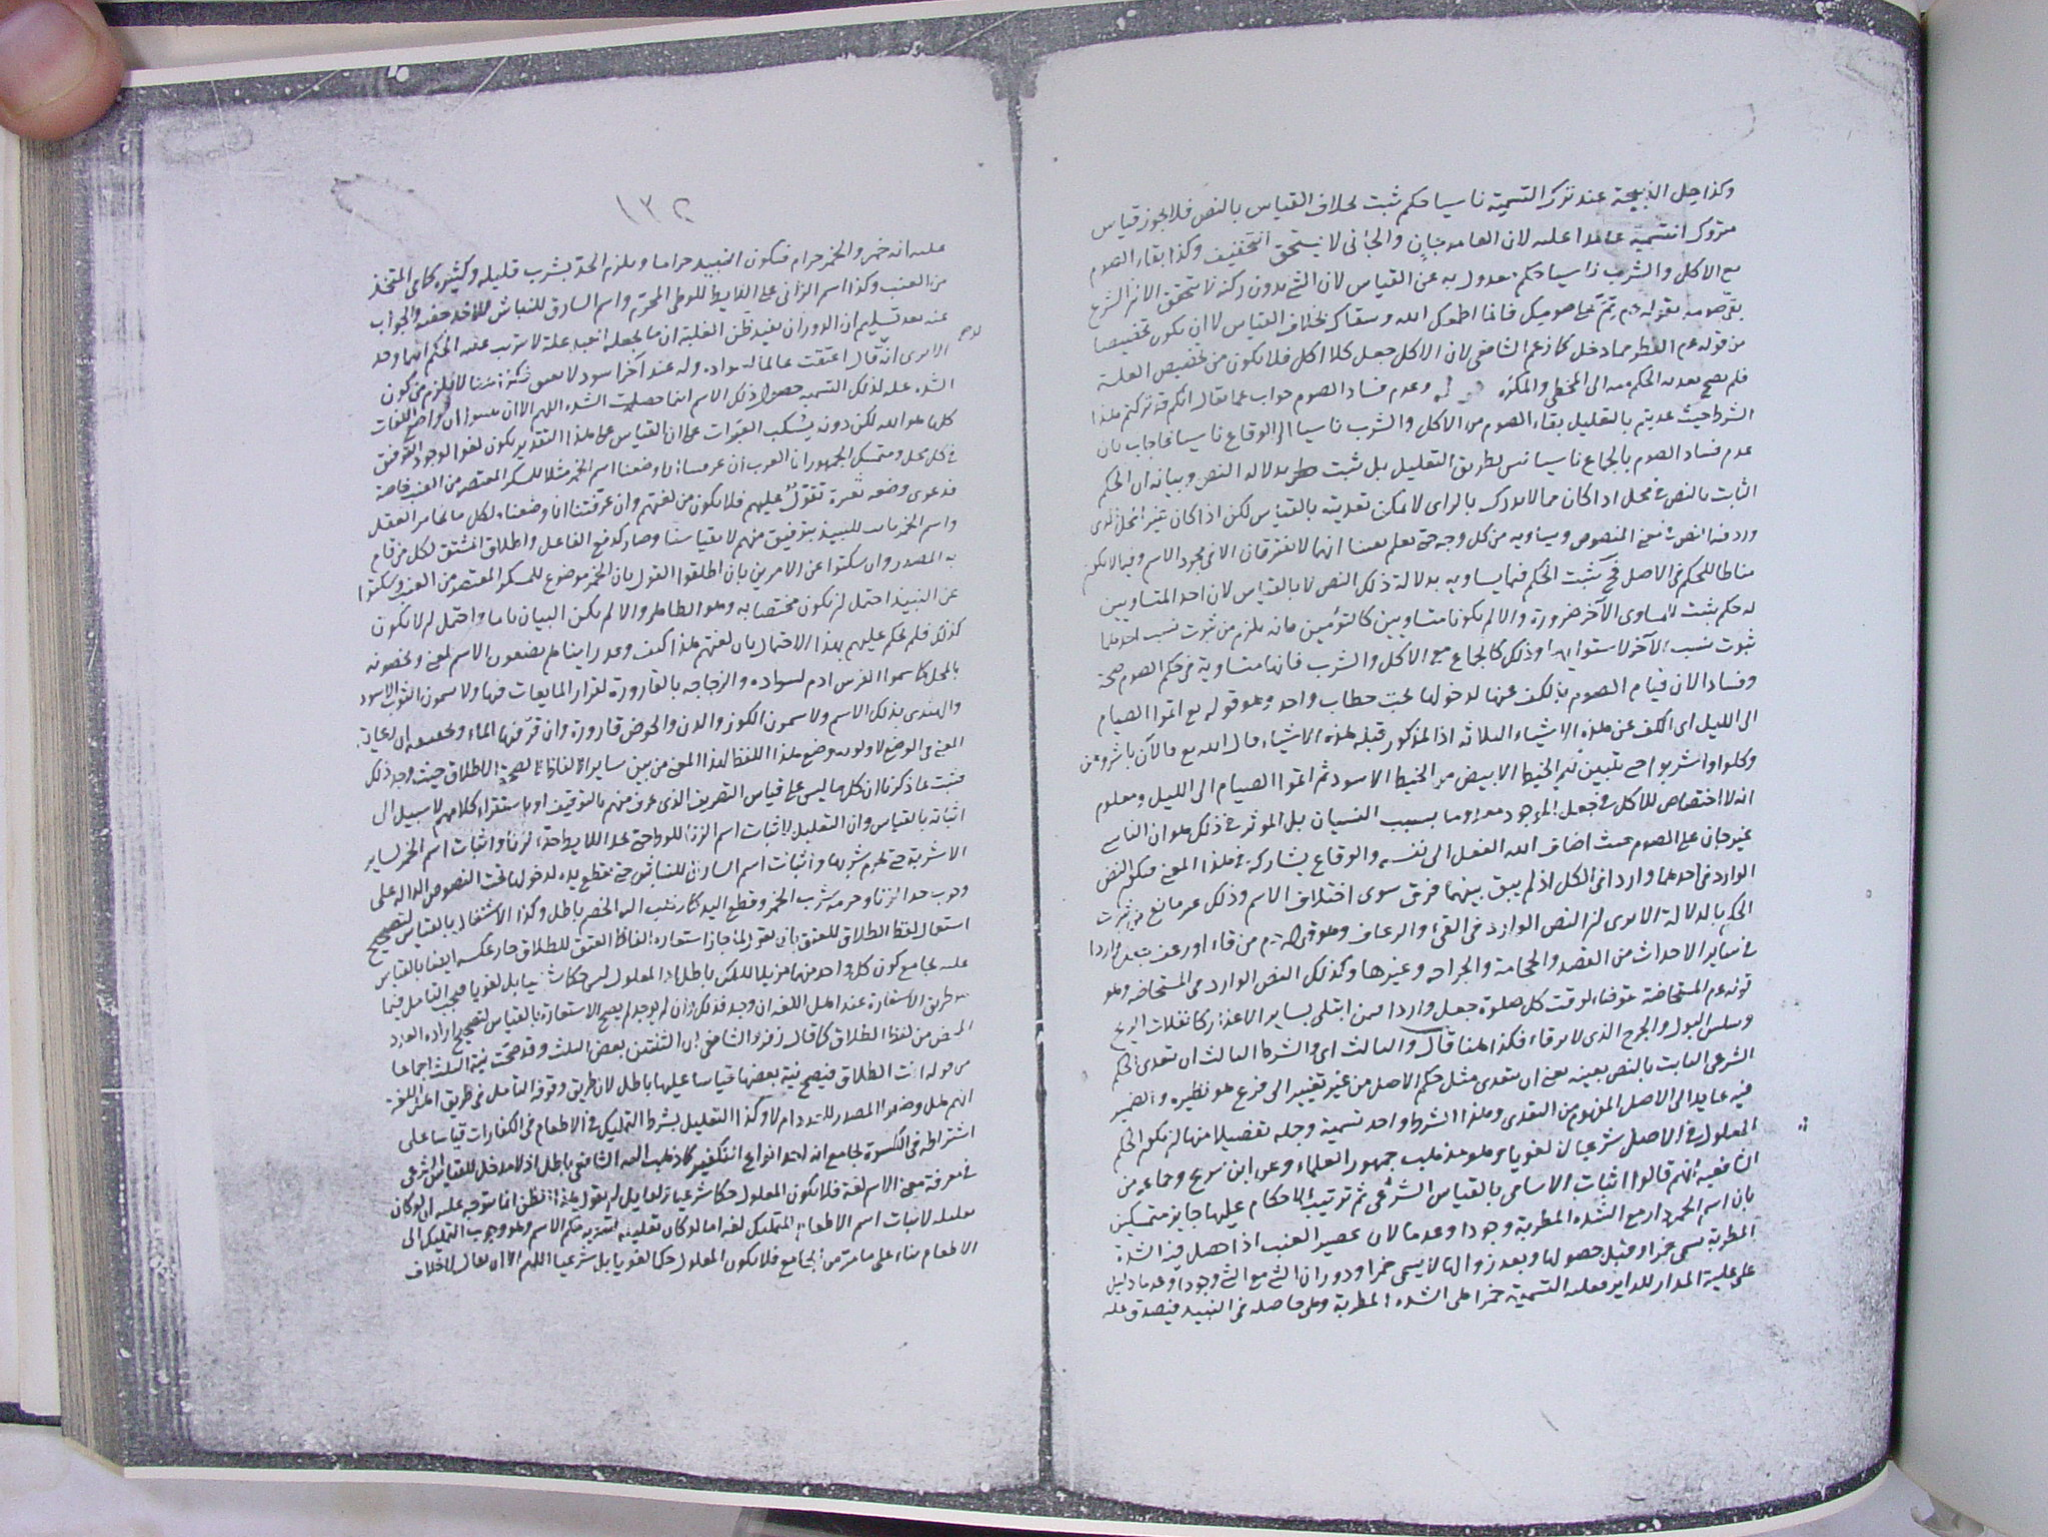 وكذا حل الذبيحة عند ترك التسمية ناسيا حكم ثبت بخلاف القياس بالنص فلا يجوز قياس
متروك التسمية عامدا عليه لان العامد جان والجاني لا يستحق التخفيف وكذا بقاء الصوم
مع الاكل والشرب ناسيا حكم معدول به عن القياس لان الشئ بدون ركنه لا يتحقق الا ان الشرع
بقى صومه بقوله عم تم على صومك فانما اطعمك الله وسقاك بخلاف القياس لا ان يكون تخصيصا
من قوله عم الفطر مما دخل كما زعم الشافعي لان الاكل جعل كلا اكل فلا يكون من تخصيص العلة
فلم يصح تعدية الحكم منه الى المخطئ والمكره وعدم فساد الصوم جواب عما يقال انكم قد تركتم هذا
الشرط حيث عديتم بالتعليل بقاء الصوم من الاكل والشرب ناسيا الى الوقاع ناسيا فاجاب بان
عدم فساد الصوم بالجماع ناسيا ليس بطريق التعليل بل ثبت بدلالة النص وبيانه ان الحكم
الثابت بالنص في محل اذا كان مما لا يدرك بالراى لا يمكن تعديته بالقياس لكن اذا كان
ورد فيه النص في معنى المنصوص ويساويه من كل وجه حتى يعلم يقينا انهما لا يفترقان الا في مجرد الاسم
مناطا للحكم في الاصل فح يثبت الحكم فيما يساويه بدلالة ذلك النص لا بالقياس لان احد المتساويين
له حكم يثبت للمساوى الآخر ضرورة والا لم يكونا متساويين كالتوأمين فانه يلزم من ثبوت نسب احدهما
ثبوت نسب الآخر لاستوائهما وذلك كالجماع مع الاكل والشرب فانها متساوية في حكم الصوم صحة
وفسادا لان قيام الصوم بالكف عنها لدخولها تحت خطاب واحد وهو قوله تع اتموا الصيام
الى الليل اى الكف عن هذه الاشياء الثلاثة اذ المذكور قبله هذه الاشياء قال الله تع فالآن باشروهن
وكلوا واشربوا حتى يتبين لكم الخيط الابيض من الخيط الاسود ثم اتموا الصيام الى الليل ومعلوم
انه لا اختصاص للاكل في جعل الموجود معدوما بسبب النسيان بل الموثر في ذلك هو ان الناسي
غير جان على الصوم حيث اضاف الله الفعل الى نفسه والوقاع يشاركه في هذا المعنى فيكون النص
الوارد في احدهما واردا في الكل اذ لم يبق بينهما فرق سوى اختلاف الاسم وذلك غير مانع من ثبوت
الحكم بالدلالة الا يرى ان النص الوارد في القئ والرعاف وهو قوله عم من قاء او رعف جعل واردا
في سائر الاحداث من الفصد والحجامة والجراحة وغيرها وكذلك النص الوارد في المستحاضة وهو
قوله عم المستحاضة تتوضاء لوقت كل صلوة جعل واردا فيمن ابتلى بسائر الاعذار كانفلات الريح
وسلس البول والجرح الذي لا يرقاء فكذا هنا قال والثالث اى والشرط الثالث ان تعدى الحكم
الشرعي الثابت بالنص بعينه يعنى ان يتعدى مثل حكم الاصل من غير تغيير الى فرع هو نظيره والضمير
فيه عايد الى الاصل المفهوم من التعدى وهذا الشرط واحد تسمية وجملة تفصيلا منها ان يكون الحكم
المعلول في الاصل شرعيا لا لغويا وهو مذهب جمهور العلماء وعن ابن سريج وجماعة من
الشافعية انهم قالوا اثبات الاسامي بالقياس الشرعي ثم ترتيب الاحكام عليها جايز متمسكين
بان اسم الخمر دار مع الشدة المطربة وجودا وعدما لان عصير العنب اذا حصل فيه الشدة
المطربة سمى خمرا وقبل حصولها وبعد زوالها لا يسمى خمرا ودوران الشئ مع الشئ وجودا وعدما دليل
على علية المدار للدائر فعلة التسمية خمرا هي الشدة المطربة وهي حاصلة في النبيذ فيصدق عليه
١٣٢
عليه انه خمر والخمر حرام فيكون النبيذ حراما ويلزم الحد بشرب قليله وكثيره كما في المتخذ
من العنب وكذا اسم الزاني على اللايط للوطى المحرم واسم السارق للنباش للاخذ خفية والجواب
عنه بعد تسليم ان الدوران يفيد ظن العلية ان ما يجعله العبد علة لا يترتب عليه الحكم اينما وجد
الا يرى انه قال اعتقت غانما لسواده وله عند آخر اسود لا يعتق
الشدة علة لذلك التسمية حصول ذلك الاسم اينما حصلت الشدة اللهم الا ان يثبتوا ان واضع اللغات
كلها هو الله لكن دونه يسكب العبرات على ان القياس على هذا التقدير يكون لغوا لوجود التوقيف
في كل محل ومتمسك الجمهور ان العرب ان عرفتنا انا وضعنا اسم الخمر مثلا للمسكر المعتصر من العنب خاصة
فدعوى وضعه لغيره تقول عليهم فلا يكون من لغتهم وان عرفتنا انا وضعناه لكل ما يخامر العقل
واسم الخمر ثابت للنبيذ بتوقيف منهم لا بقياسنا وصار كرفع الفاعل واطلاق المشتق لكل من قام
به المصدر وان سكتوا عن الامرين بان اطلقوا القول بان الخمر موضوع للمسكر المعتصر من العنب وسكتوا
عن النبيذ احتمل ان يكون مختصا به وهو الظاهر والا لم يكن البيان تاما واحتمل ان لا يكون
كذلك فلم نحكم عليهم بهذا الاحتمال بان لغتهم هذا كيف وقد راينا هم يضعون الاسم لمعنى ويخصونه
بالمحل كما سموا الفرس ادهم لسواده والزجاجة بالقارورة لقرار المايعات فيها ولا يسمون الثوب الاسود
والهندى بذلك الاسم ولا يسمون الكوز والدن والحوض قارورة وان قر فيها الماء وتحقيقه ان رعاية
المعنى في الوضع لاولوية وضع هذا اللفظ لهذا المعنى من بين سائر الالفاظ لا لصحة الاطلاق حيث وجد ذلك
فثبت بما ذكرنا ان كل ما ليس على قياس التصريف الذى عرف منهم بالتوقيف او باستقراء كلامهم لا سبيل الى
اثباته بالقياس وان التعليل لاثبات اسم الزنا للواطة حتى يحد اللايط حد الزنا واثبات اسم الخمر لساير
الاشربة حتى يحرم شربها واثبات اسم السارق للنباش حتى يقطع يده لدخولها تحت النصوص الدالة على
وجوب حد الزنا وحرمة شرب الخمر وقطع اليد كما ذهب اليه الخصم باطل وكذا الاشتغال بالقياس لتصحيح
استعمال لفظ الطلاق للعتق بان يقول لما جاز استعارة الفاظ العتق للطلاق جاز عكسه ايضا بالقياس
عليه بجامع كون كل واحد منهما مزيلا للملك باطل اذ المعلول ليس حكما شرعيا بل لغويا فيجب التامل فيما
هو طريق الاستعارة عند اهل اللغة ان وجد فذلك وان لم يوجد لم يصح الاستعارة بالقياس لتصحيح ارادة العدد
المحض من لفظ الطلاق كما قال زفر والشافعي ان الثنتين بعض الثلث وقد صحت نية الثلث اجماعا
من قوله انت الطلاق فيصح نية بعضها قياسا عليها باطل لان طريق وقوفه التامل في طريق اهل اللغة
انهم هل وضعوا المصدر للعدد ام لا وكذا التعليل بشرط التمليك في الاطعام في الكفارات قياسا على
اشتراطه في الكسوة بجامع انه احد انواع التكفير كما ذهب اليه الشافعي باطل اذ لا مدخل للقياس الشرعي
في معرفة معنى الاسم لغة فلا يكون المعلول حكما شرعيا انما يتوجه عليه ان لو كان
تعليله لاثبات اسم الاطعام للتمليك لغة اما لو كان تعليله لتعدية حكم الاسم وهو وجوب التمليك الى
الاطعام بناء على ما مر من الجامع فلا يكون المعلول حكما لغويا بل شرعيا اللهم الا ان يقال لا خلاف